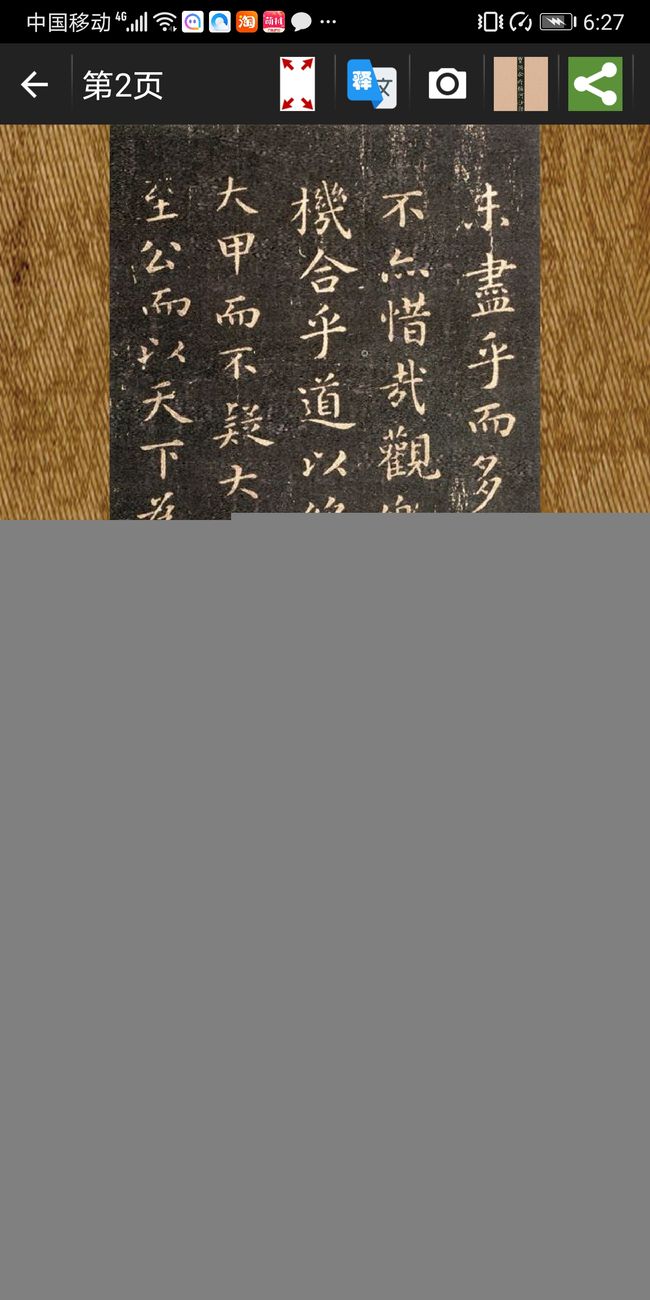 中国移动 4G 淘 6:27
第2页
未盡乎而多
不亦惜哉觀
機合乎道以
大甲而不疑大
至公而以天下